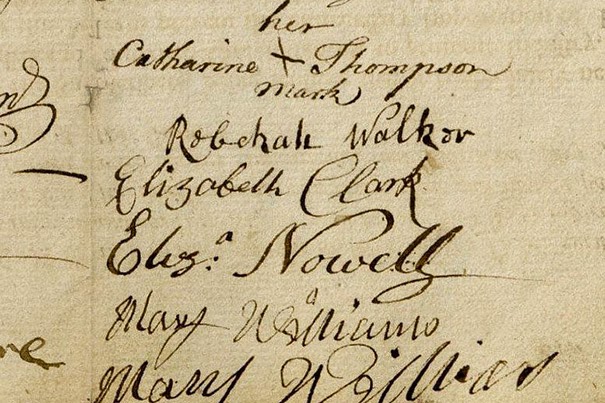 her
Catharine + Thompson
mark
Rebekah Walker
Elizabeth Clark
Eliz.a Nowell
Mary Williams
Mary